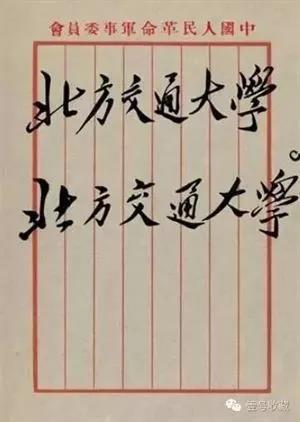 中國人民革命軍事委員會
北方交通大學
北方交通大學。
壹号收藏